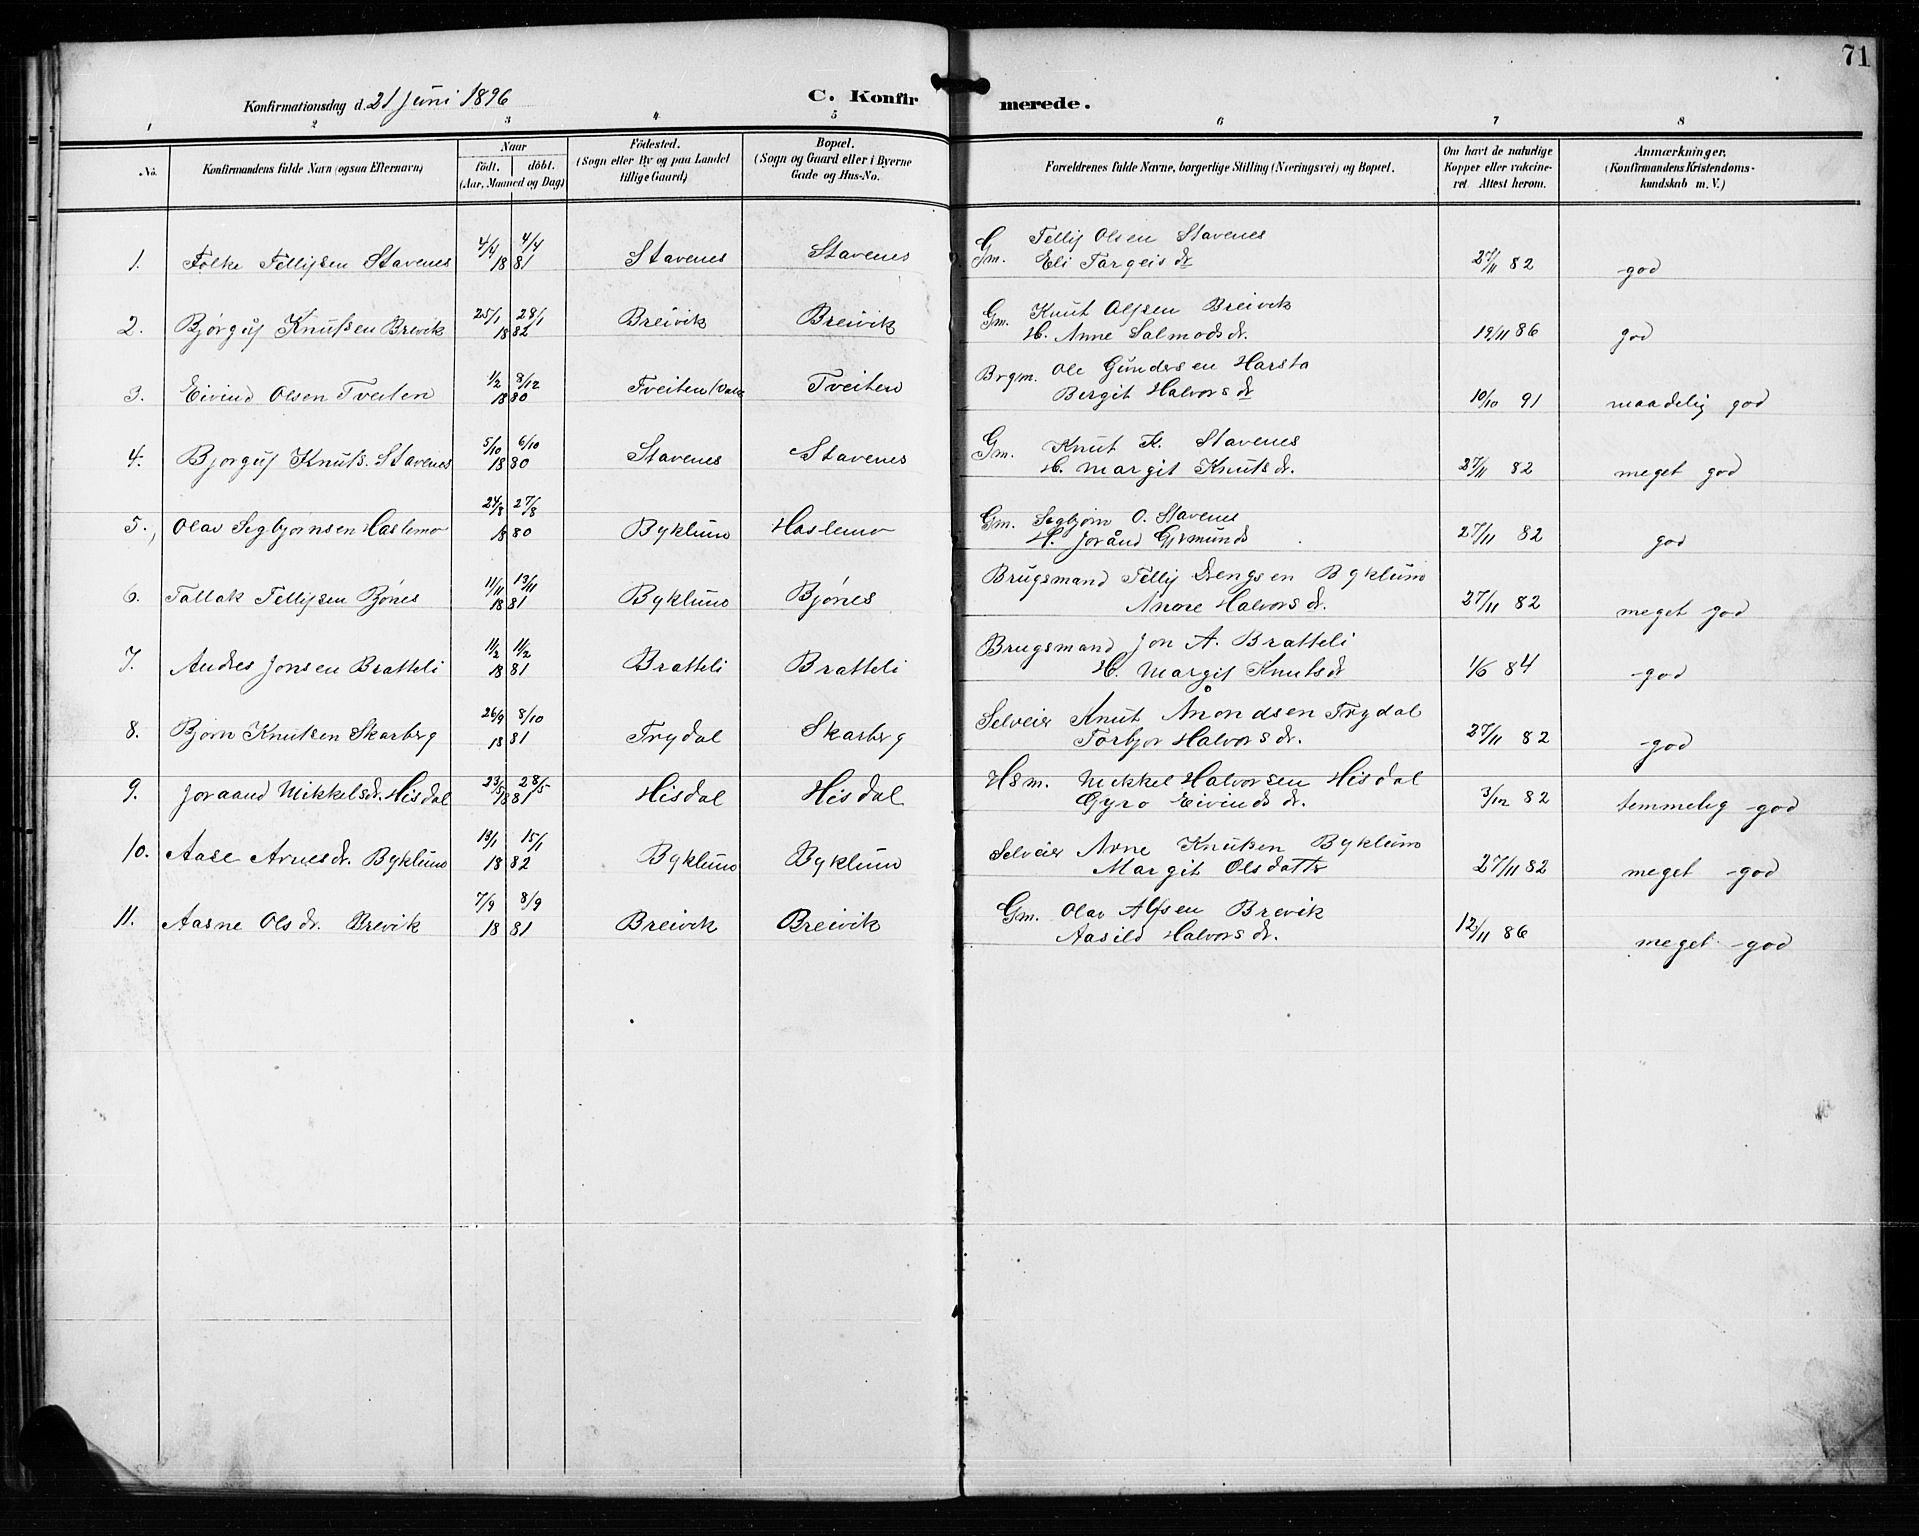 71
Konfirmationsdag d. 21 Juni 1896 C. Konfirmerede.
1 2 3 4 5 6 7 8
No. Konfirmandens fulde Navn (ogsaa Efternavn) Naar født. døbt. (Aar, Maaned og Dag) Fødested. (Sogn eller By og paa Landet tillige Gaard) Bopæl. (Sogn og Gaard eller i Byerne Gade og Hus-No. Forældrenes fulde Navne, borgerlige Stilling (Næringsvei) og Bopæl. Om havt de naturlige Kopper eller vakcineret. Attest herom. Anmærkninger. (Konfirmandens Kristendomskundskab m. V.)
1. Folke Tellefsen Stavenes 4/4 4/4 1881 Stavenes Stavenes Gm. Tellef Olsen Stavenes
Eli Targeisdr 27/11 82 god
2. Bjørguf Knutsen Brevik 25/1 28/1 1882 Breivik Breivik Gm. Knut Olsen Breivik
H. Anne Salmodsdr. 12/11 86 god
3. Eivind Olsen Tveiten 1/2 8/12 1880 Tveiten Tveiten Brgm. Ole Gundersen Harsta
Bergit Halvorsdr 10/10 91 maadelig god
4. Bjorguf Knuts. Stavenes 5/10 6/10 1880 Stavenes Stavenes Gm. Knut K. Stavenes
H. Margit Knutsdr. 27/11 82 meget god
5. Olav Segbjørnsen Haslemo 24/8 27/8 1880 Byklum Haslemo Gm. Segbjørn O. Stavenes
H. Joränd Germunds 27/11 82 god
6. Tallak Tellefsen Bjønes 11/11 13/11 1881 Byklum Bjønes Brugsmand Tellef Drengsen Byklum
Anne Halvorsdr. 27/11 82 meget god
7. Andres Jonsen Bratteli 11/2 11/2 1881 Bratteli Bratteli Brugsmand Jon A. Bratteli
H. Margit Knutsdr 1/6 84 god
8. Bjørn Knutsen Skarberg 26/9 8/10 1881 Trydal Skarberg Selveier Knut Ånondsen Trydal
Torbjor Halvorsdr. 27/11 82 god
9. Joraand Mikkelsdr. Hisdal 23/5 28/5 1881 Hisdal Hisdal Hsm. Mikkel Halvorsen Hisdal
Gyro Eivindsdr. 3/12 82 temmelig god
10. Aase Arnesdr. Byklum 13/1 15/1 1882 Byklum Byklum Selveier Arne Knutsen Byklum
Margit Olsdattr 27/11 82 meget god
11. Aasne Olsdr. Brevik 7/9 8/9 1881 Breivik Breivik Gm. Olav Alfsen Brevik
Aasild Halvorsdr. 12/11 86 meget god